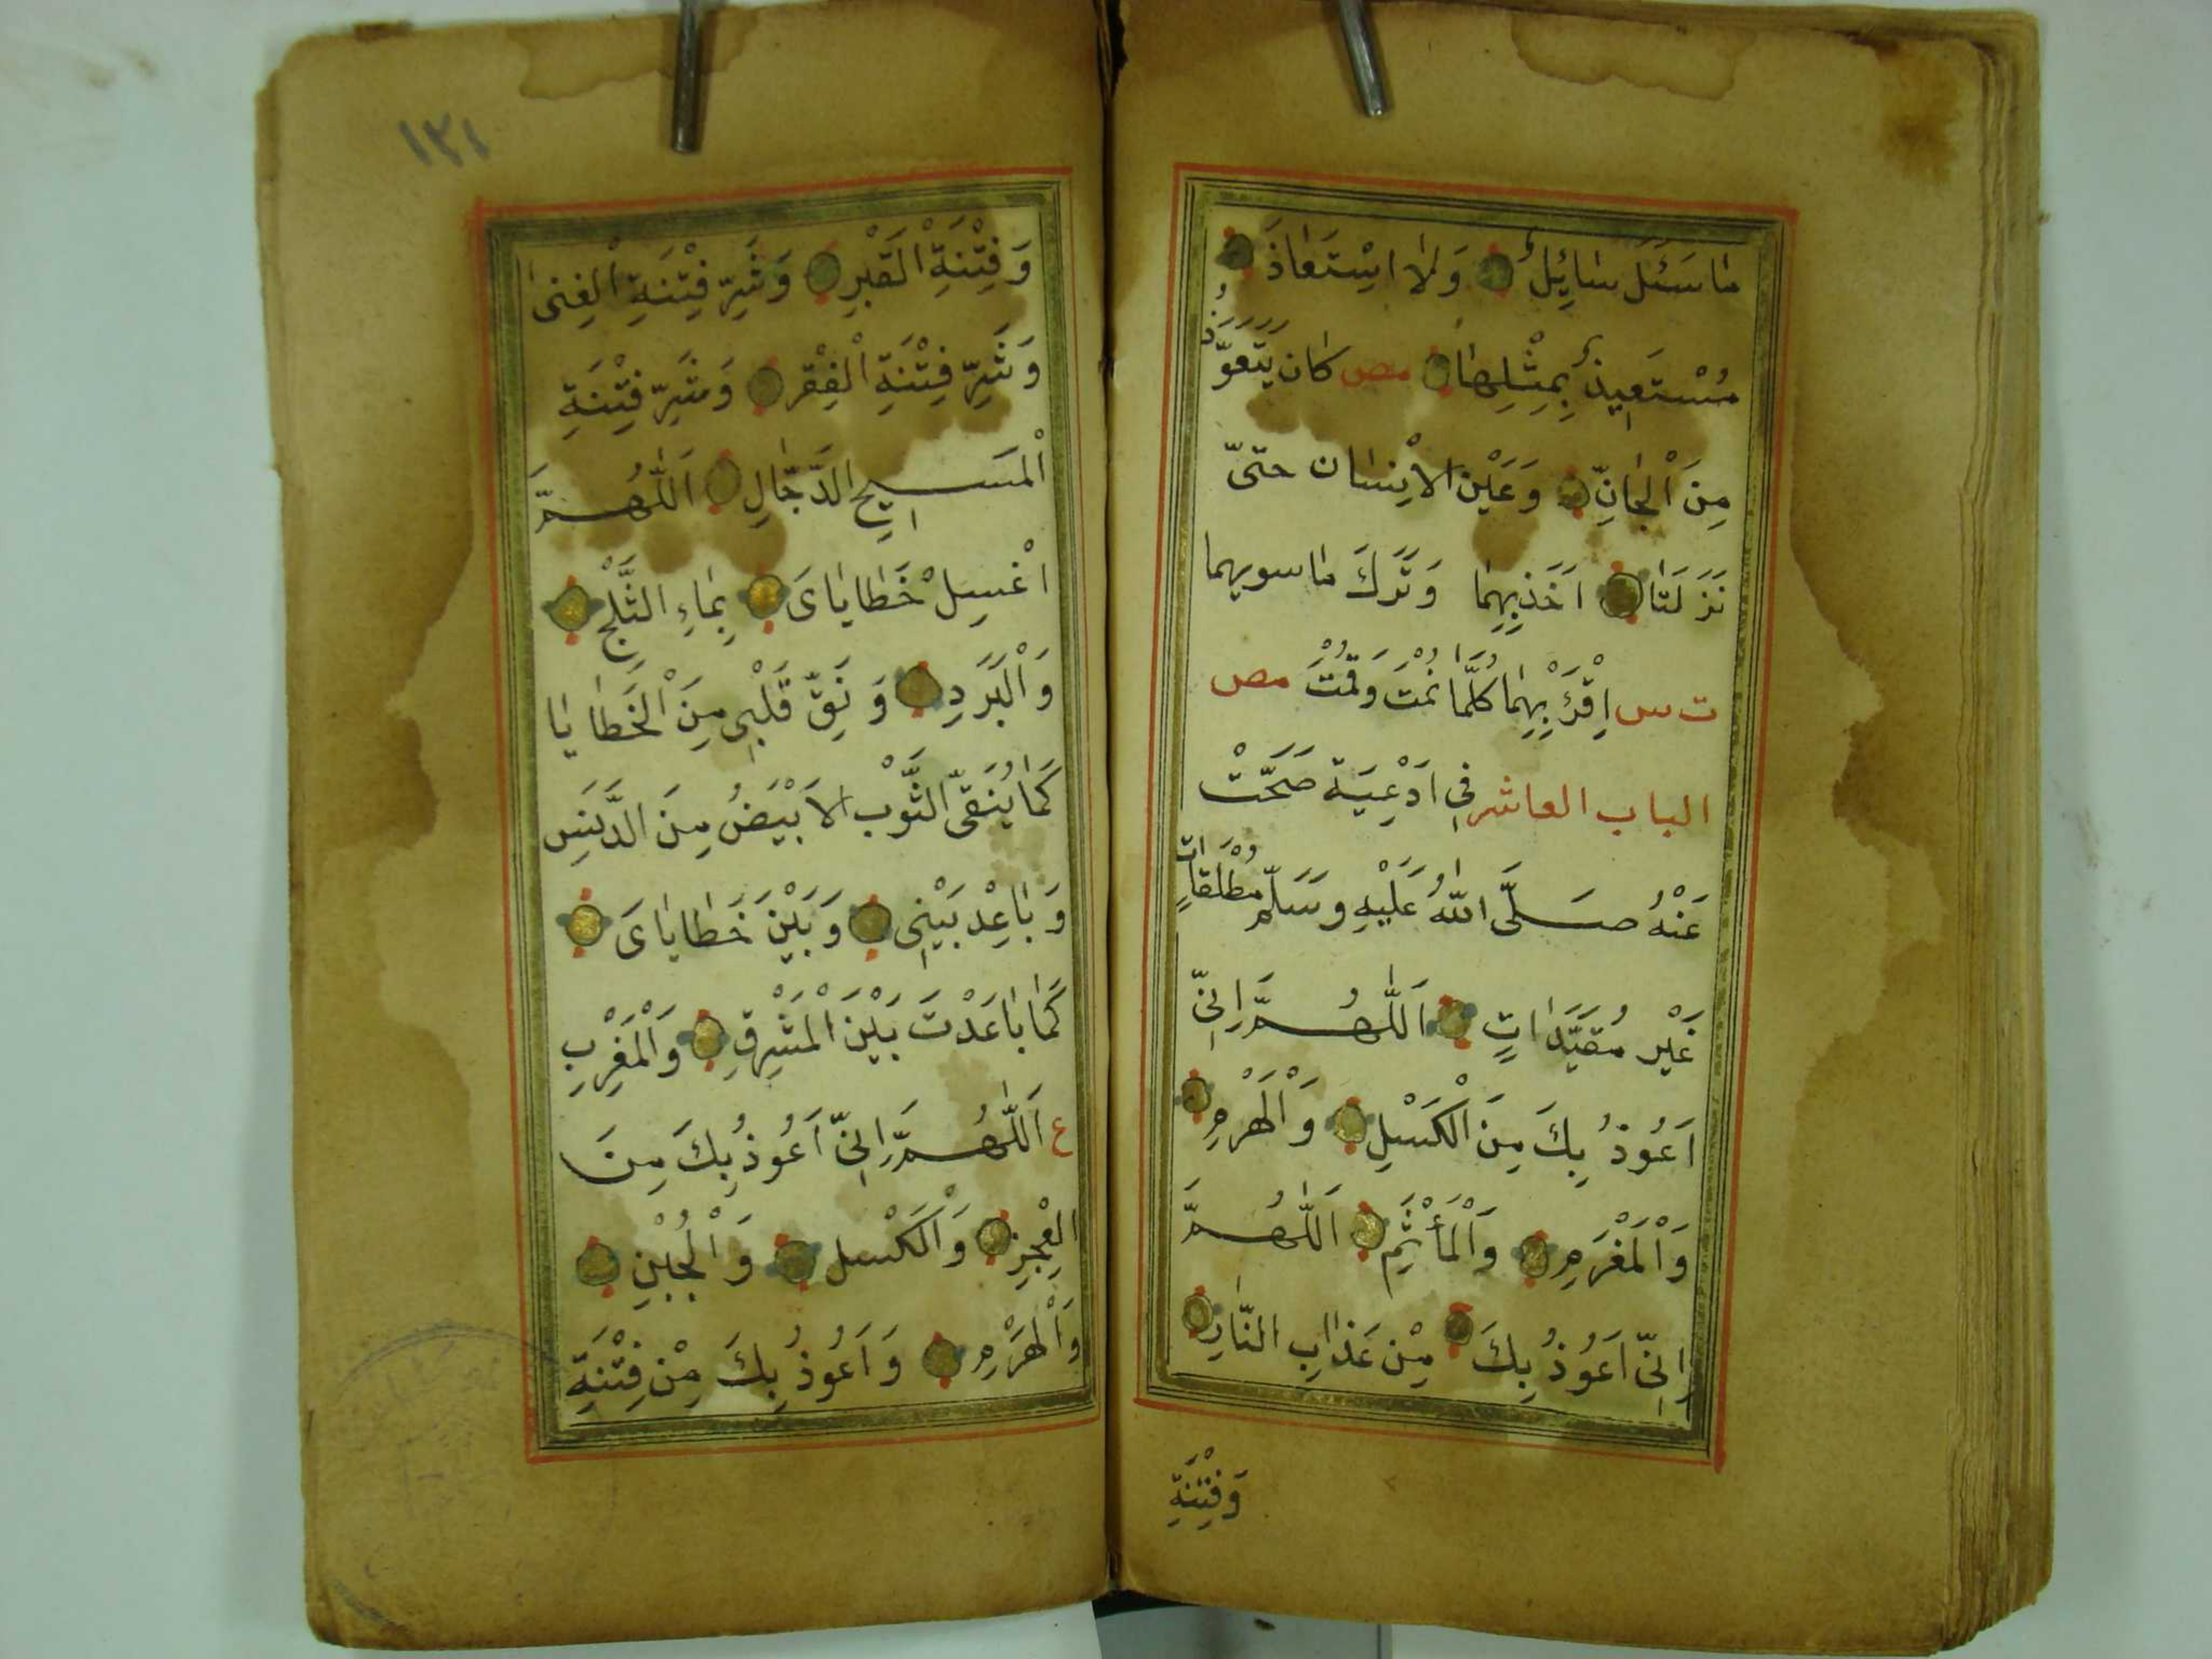 مَا سَئَلَ سَائِلٌ وَلَا اسْتَعَاذَ
مُسْتَعِيذٌ بِمِثْلِهَا مص كان يَتَعَوَّذُ
مِنَ الْجَانِّ وَعَيْنِ الْاِنْسَان حتىّ
نَزَلَتَا اَخَذَ بِهِمَا وَتَرَكَ مَا سويهما
ت س اِقْرَءْ بِهِمَا كُلَّمَا نِمْتَ وَقُمْتَ مص
الباب العاشر فِي اَدْعِيَة صَحَّتْ
عَنْهُ صَلَّى اللّٰهُ عَلَيْهِ وَسَلَّمَ مُطْلَقَاتٍ
غَيْر مُقَيَّدَاتٍ اَللّٰهُمَّ اِنِّي
اَعُوذُ بِكَ مِنَ الْكَسَلِ وَالْهَرَمِ
وَالْمَغْرَمِ وَالْمَأْثَمِ اَللّٰهُمَّ
اِنِّي اَعُوذُ بِكَ مِنْ عَذَابِ النَّارِ
وَفِتْنَةِ
١٣١
وَفِتْنَةِ الْقَبْرِ وَشَرِّ فِتْنَةِ الْغِنىٰ
وَشَرِّ فِتْنَةِ الْفَقْرِ وَشَرِّ فِتْنَةِ
الْمَسِيحِ الدَّجَّالِ اَللّٰهُمَّ
اغْسِلْ خَطَايَاىَ بِمَاءِ الثَّلْجِ
وَالْبَرَدِ وَنَقِّ قَلْبِي مِنَ الْخَطَايَا
كَمَا يُنَقَّى الثَّوْب الْاَبْيَضُ مِنَ الدَّنَسِ
وَبَاعِدْ بَيْنِي وَبَيْنَ خَطَايَاىَ
كَمَا بَاعَدْتَ بَيْنَ الْمَشْرِقِ وَالْمَغْرِبِ
ع اَللّٰهُمَّ اِنِّي اَعُوذُ بِكَ مِنَ
الْعَجْزِ وَالْكَسَل وَالْجُبْنِ
وَالْهَرَمِ وَاَعُوذُ بِكَ مِنْ فِتْنَةِ